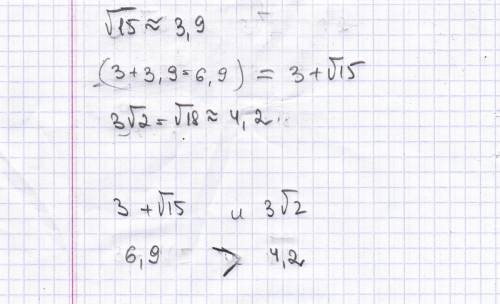 √15 ≈ 3,9
(3+3,9=6,9) = 3+√15
3√2=√18≈4,2
3+√15 и 3√2
6,9 > 4,2